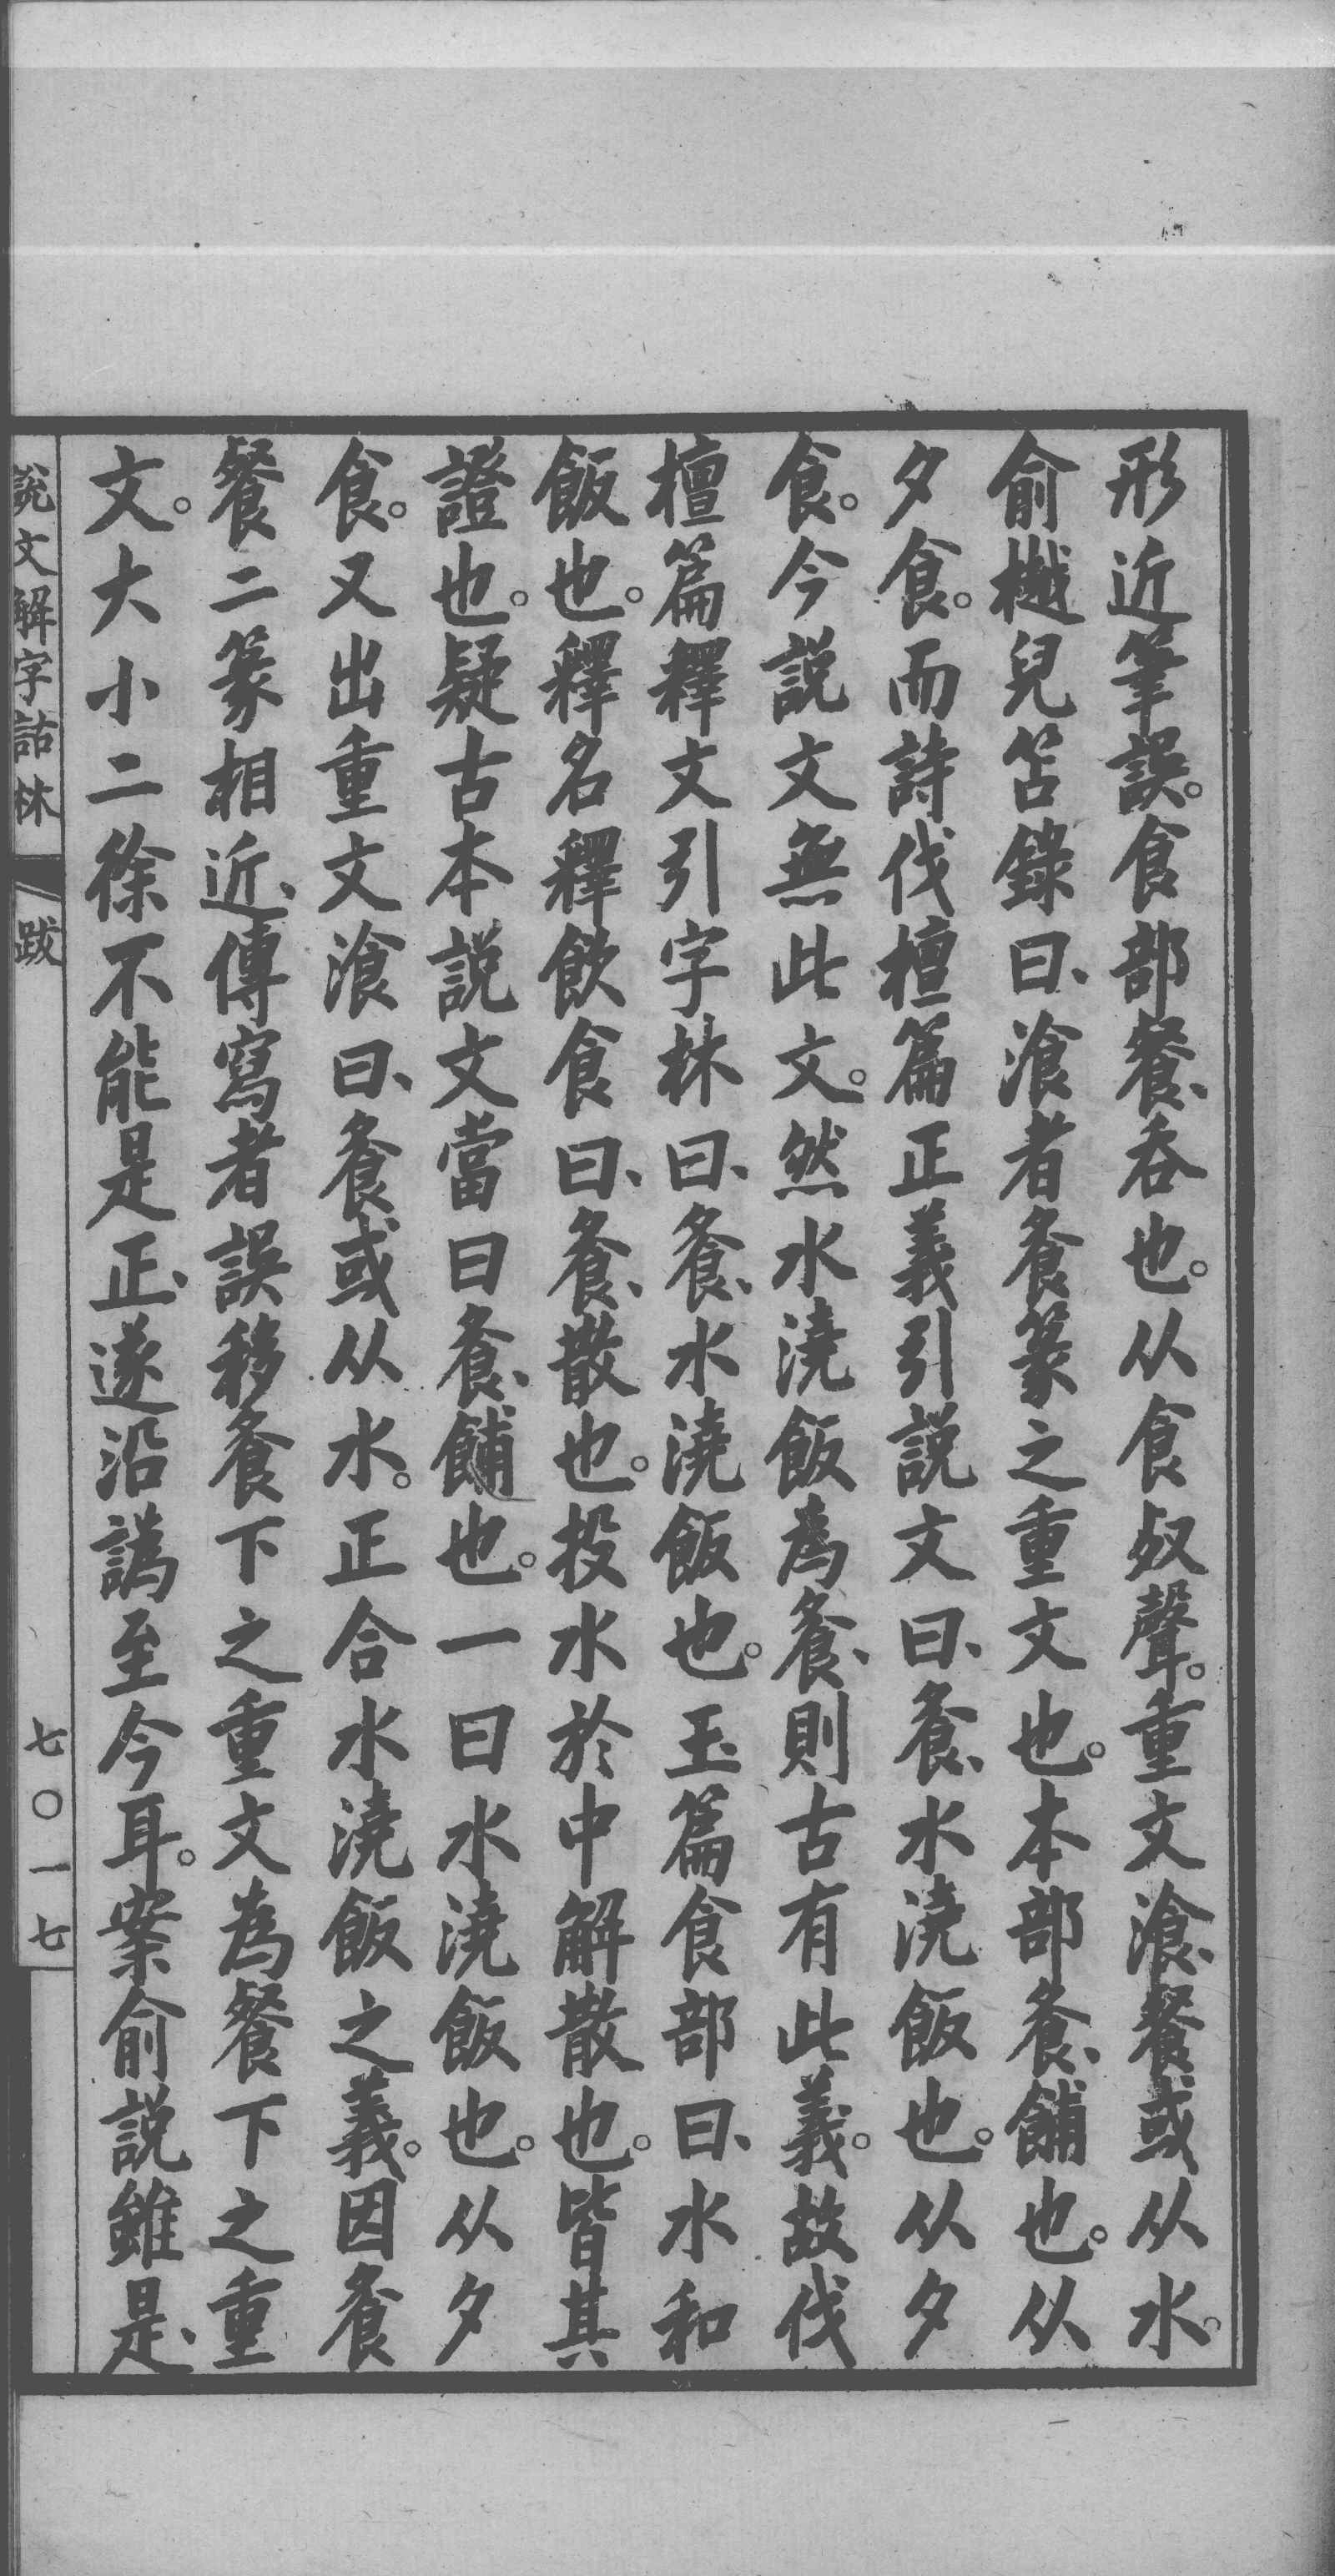 形近筆誤。食部餐、吞也。从食𣦼聲。重文湌、餐或从水。
俞樾兒笘錄曰、湌者飧篆之重文也。本部飧、餔也。从
夕食。而詩伐檀篇正義引説文曰、飧、水澆飯也。从夕
食。今説文無此文。然水澆飯為飧、則古有此義。故伐
檀篇釋文引字林曰、飧、水澆飯也。玉篇食部曰、水和
飯也。釋名釋飲食曰、飧、散也。投水於中解散也。皆其
證也。疑古本説文當曰飧、餔也。一曰水澆飯也。从夕
食。又出重文湌曰、飧或从水。正合水澆飯之義。因飧
餐二篆相近、傳寫者誤移飧下之重文為餐下之重
文。大小二徐不能是正、遂沿譌至今耳。案俞説雖是、
説文解字詁林 跋 七〇一七